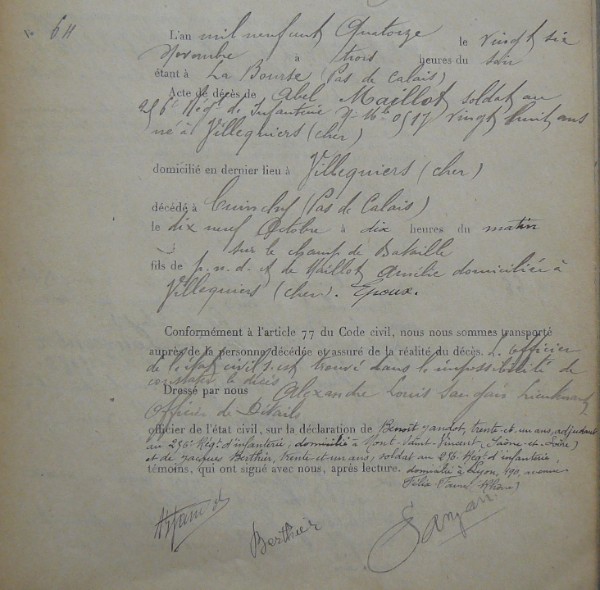 N° 611
L'an mil neuf cent Quatorze le vingt six
Novembre à trois heures du soir
étant à La Bourse (Pas de Calais)
Acte de décès de Abel Maillot soldat au
256e Régt de Infanterie vingt huit ans
né à Villequiers (cher)
domicilié en dernier lieu à Villequiers (cher)
décédé à Cuinchy (Pas de Calais)
le dix neuf Octobre à dix heures du matin
sur le champ de Bataille
fils de p. n. d. et de Maillot domiciliée à
Villequiers (cher). Epoux.
Conformément à l'article 77 du Code civil, nous nous sommes transporté
auprès de la personne décédée et assuré de la réalité du décès. L'officier
de l'état civil s'est trouvé dans l'impossibilité de
constater le décès
Dressé par nous Alexandre Louis Lieutenant
Officier de Détails
officier de l'état civil, sur la déclaration de Benoît Jandot, trente et un ans, adjudant
au 256e Régt d'infanterie, domicilié à Mont-Saint-Vincent (Saône-et-Loire)
et de Berthier, trente et un ans, soldat au 256e Régt d'infanterie,
témoins, qui ont signé avec nous, après lecture. domicilié à Lyon, 190, avenue
Félix Faure (Rhône)
Berthier